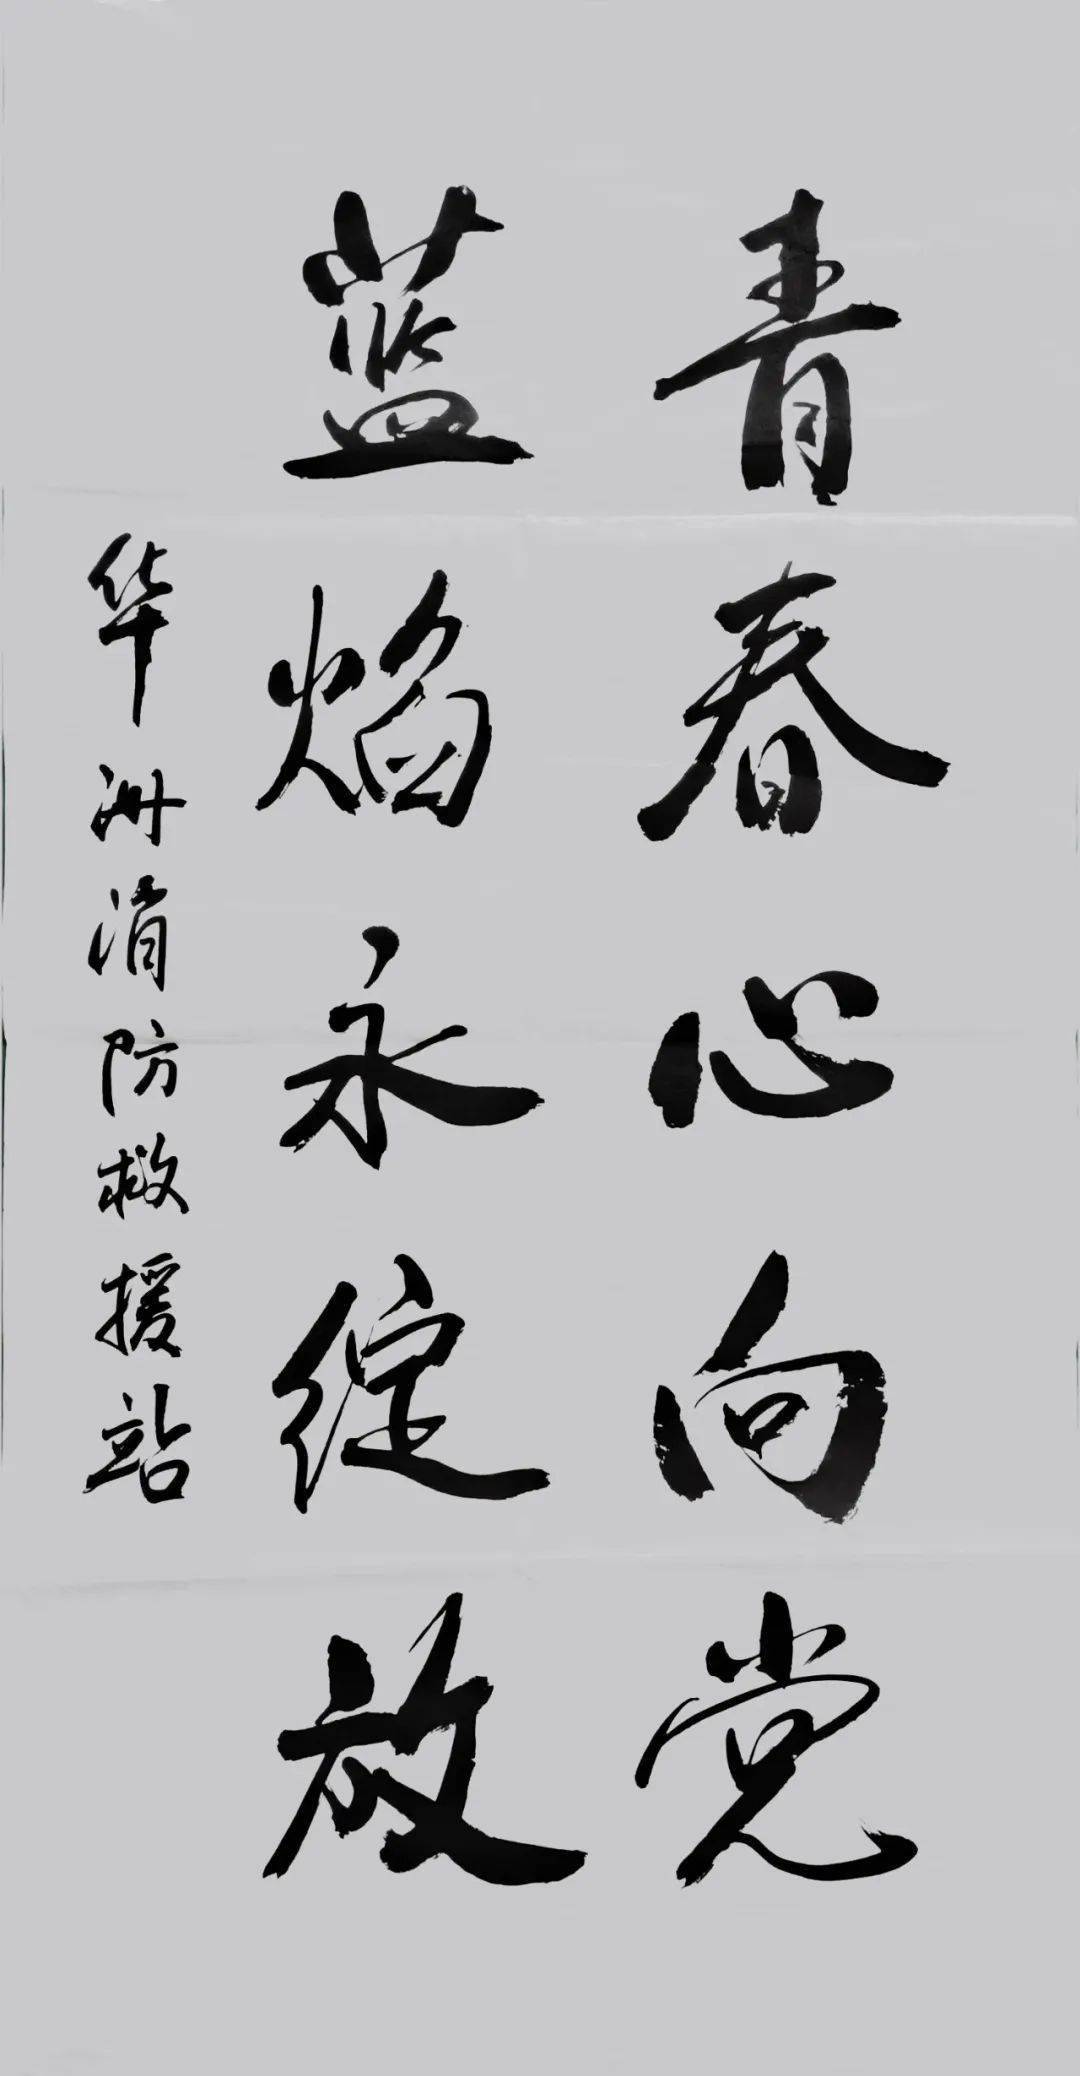 青春心向党
蓝焰永绽放
华洲消防救援站